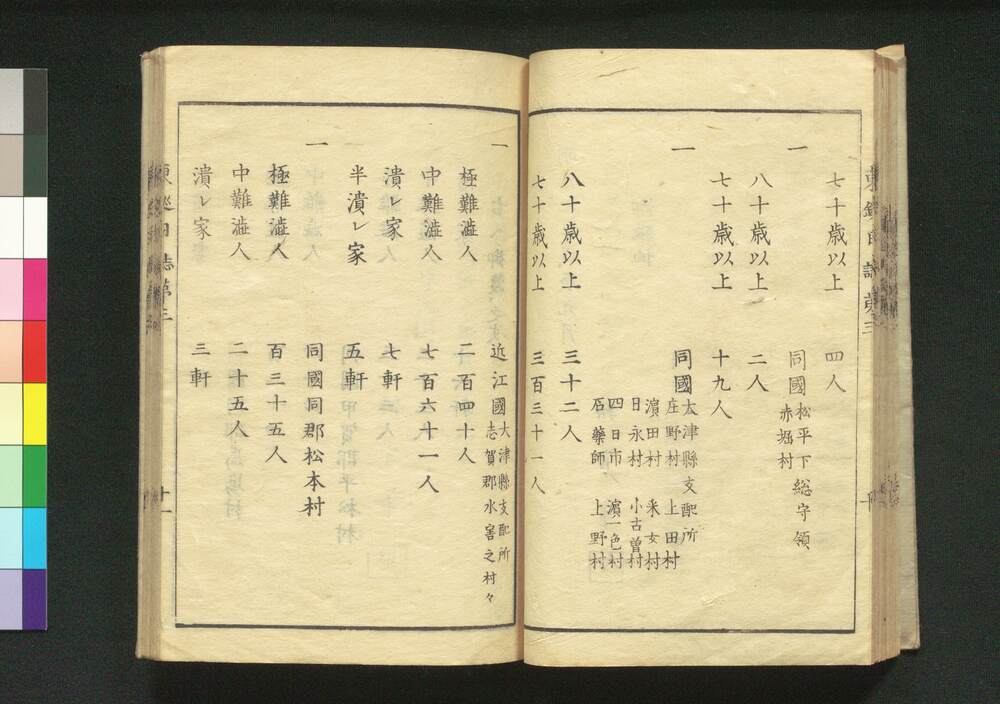 七十歳以上　四人
一　同國松平下總守領
赤堀村
八十歳以上　二人
七十歳以上　十九人
一　同國大津縣支配所
庄野村　上田村
濵田村　釆女村
日永村　小古曽村
四日市　濵一色村
石藥師　上野村
八十歳以上　三十二人
七十歳以上　三百三十一人
一　近江國大津縣支配所
志賀郡水害之村々
極難澁人　二百四十人
中難澁人　七百六十一人
潰レ家　七軒
半潰レ家　五軒
一　同國同郡松本村
極難澁人　百三十五人
中難澁人　二十五人
潰レ家　三軒
東巡日誌第三　十一